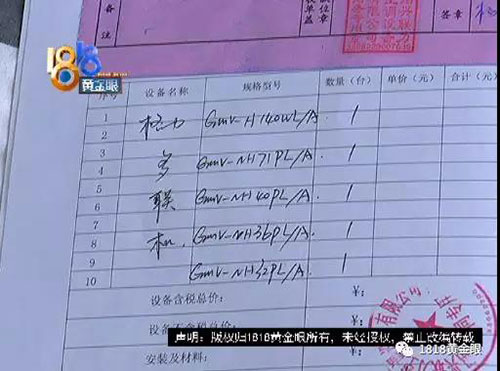 备
注
签章
1818
黄金眼
序号 设备名称 规格型号 数量（台） 单价（元） 合计（元）
1
2 格力 GMV-H140WL/A 1
3
4 多 GMV-NH71PL/A 1
5
6 联 GMV-NH40PL/A 1
7
8 机 GMV-NH36PL/A 1
9
10 GMV-NH32PL/A 1
设备含税总价： ￥：
￥：
安装及材料：
有限公司
声明：版权归1818黄金眼所有，未经授权，禁止改编转载
1818黄金眼